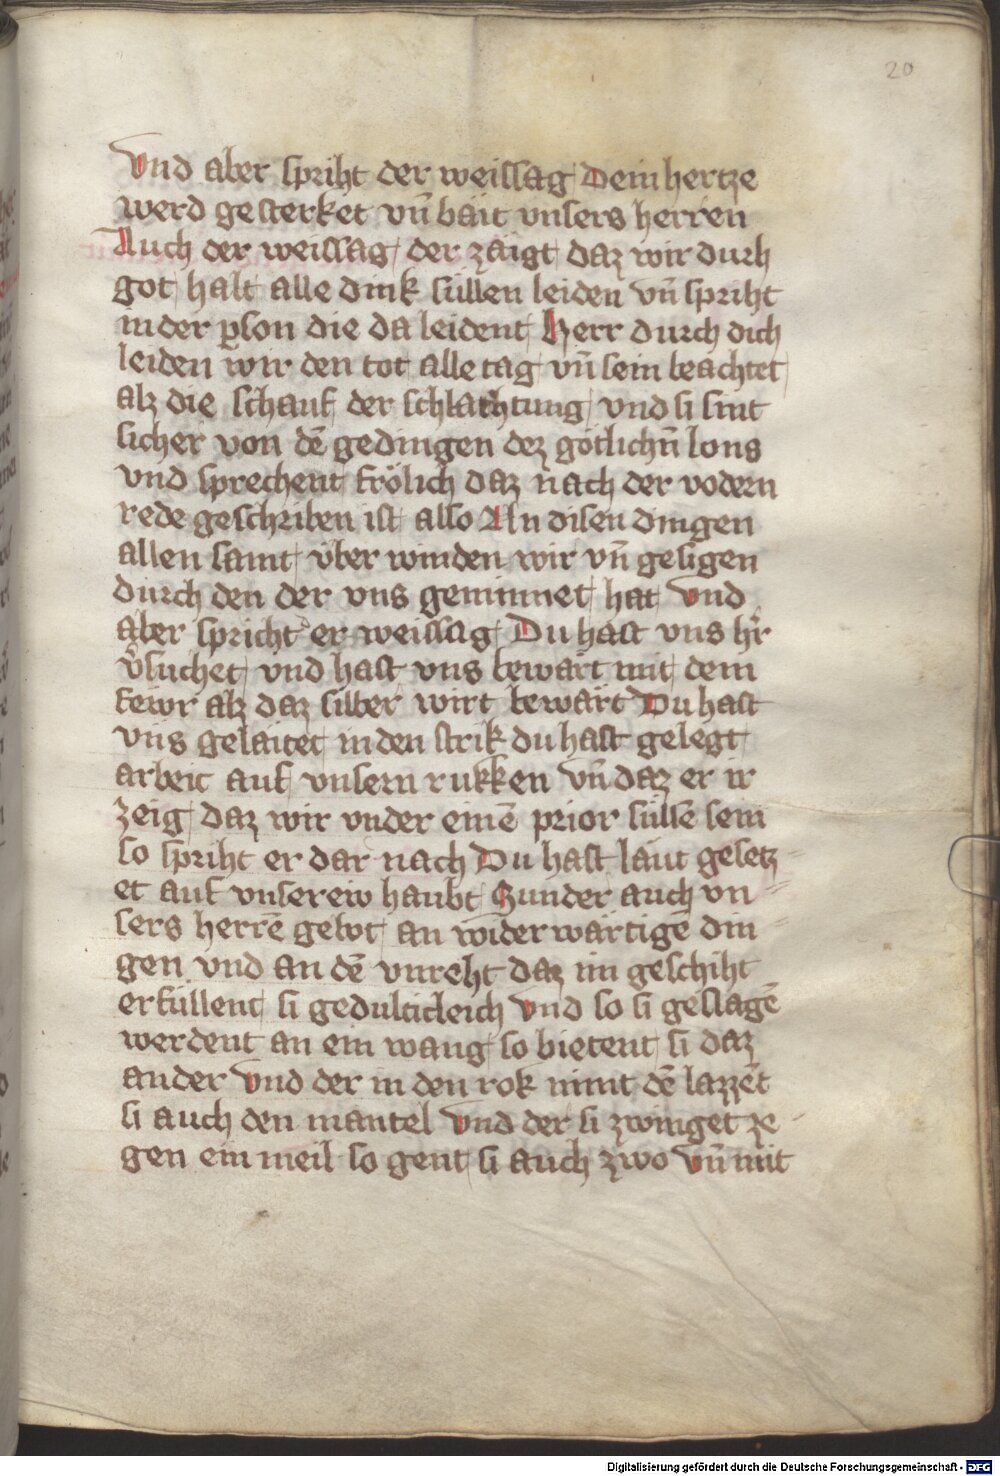 20
Vnd aber spriht der weissag Dein hertze
werd gesterket vn̄ bait vnsers herren
Auch der weissag der zaigt daz wir durh
got halt alle dink süllen leiden vn̄ spriht
in der ꝑson die da leident Herr durch dich
leiden wir den tot alle tag vn̄ sein beachtet
alz die schauf der schlachtung vnd si sint
sicher von dē gedingen dez götlichn̄ lons
vnd sprechent frölich daz nach der vodern
rede geschriben ist also An disen dingen
allen samt über winden wir vn̄ gesigen
durch den der vns geminnet hat Vnd
aber spricht er weissag Du hast vns hr̄
v̄suchet vnd hast vns bewart mit dem
fewr alz daz silber wirt bewart Du hast
vns gelaitet in den strik du hast gelegt
arbeit auf vnsern rukken Vn̄ daz er ir
zeig daz wir vnder einē prior süllē sein
so spriht er dar nach Du hast läut gesetz
et auf vnserew haubt Sunder auch vn
sers herrē gebot an widerwärtigē din
gen vnd an dē vnreht daz im geschiht
erfüllent si gedulticleich Vnd so si geslagē
werdent an ein wang so bietent si daz
ander Vnd der in den rok nimt dē lazzēt
si auch den mantel Vnd der si zwinget ze
gen ein meil so gent si auch zwo Vn̄ mit
Digitalisierung gefördert durch die Deutsche Forschungsgemeinschaft - DFG